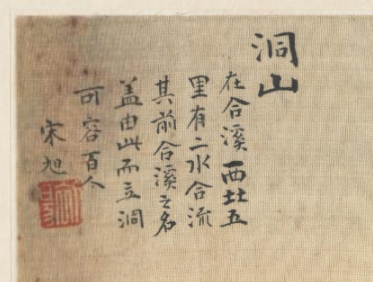 洞山
在合溪西北五
里有二水合流
其前合溪之名
盖由此而立洞
可容百人
宋旭